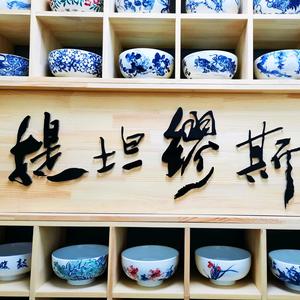 提坦缪斯